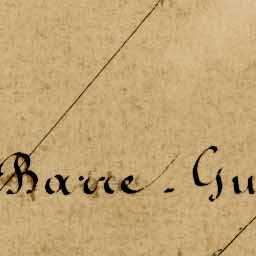 Barre - Gu